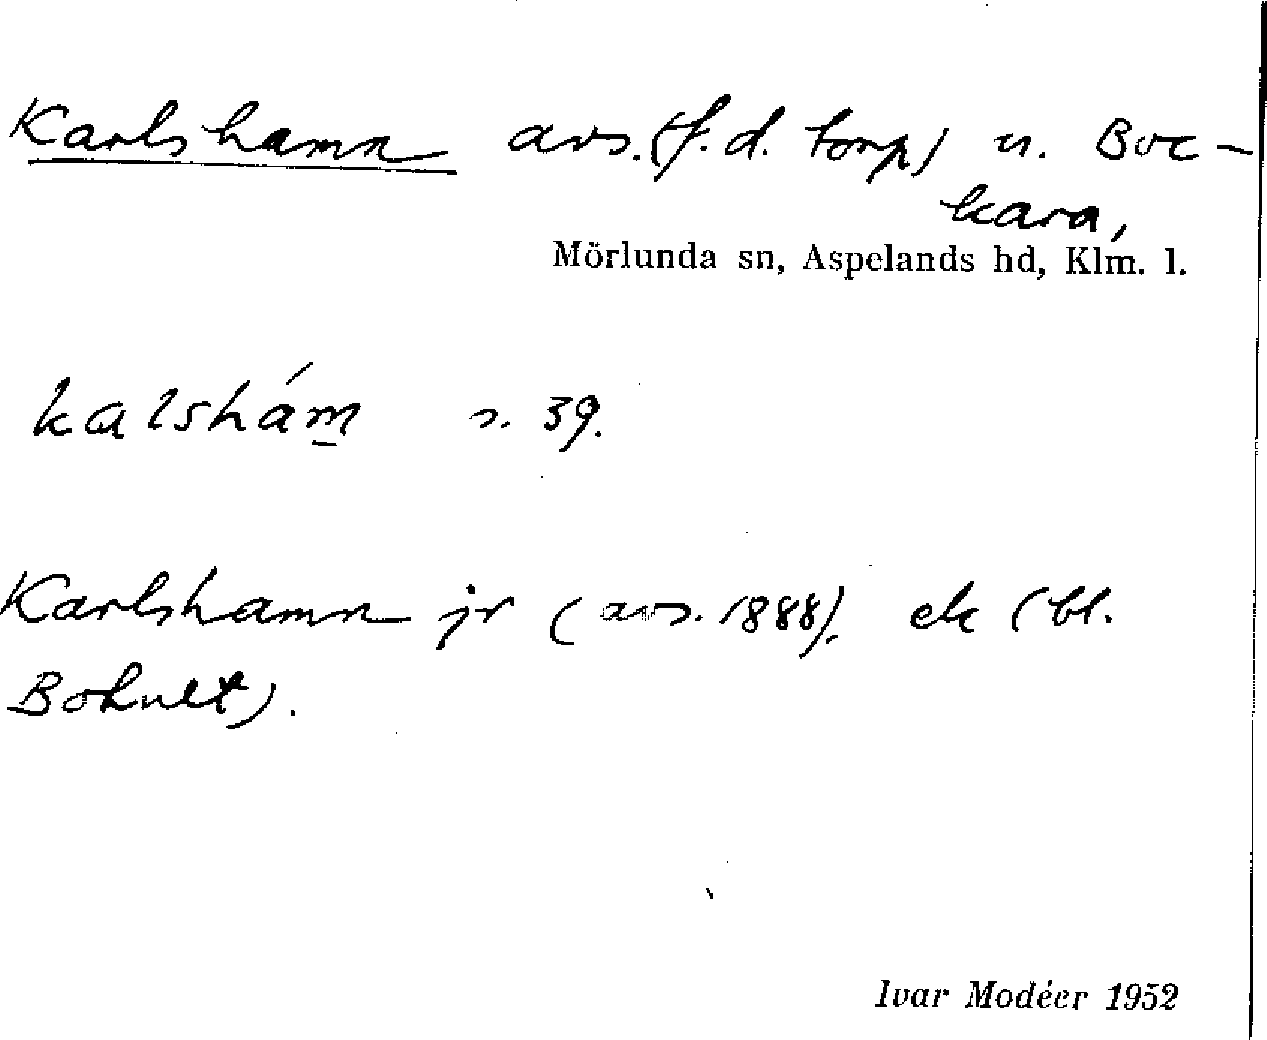 Karlshamn avs. (f.d. torp) u. Boc-
kara,
Mörlunda sn, Aspelands hd, Klm. l.
kalshám s. 39.
Karlshamn jr (avs. 1888). ek (bl.
Bohult).
Ivar Modéer 1952